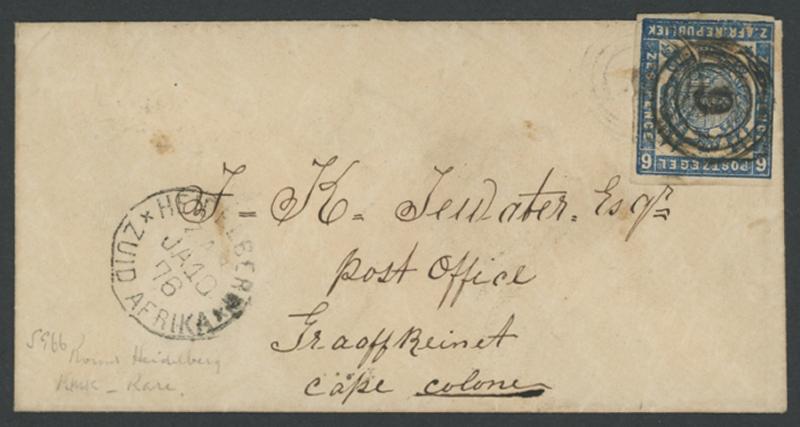 Z. AFR. REPUBLIEK
ZES PENCE
6 POSTZEGEL 6
J= K= TeWater. Esqr.
Post Office
Graaff Reinet
Cape Colone
HEIDELBERG
JA 10
76
ZUID AFRIKA
5966
Round Heidelberg
Mark - Rare.